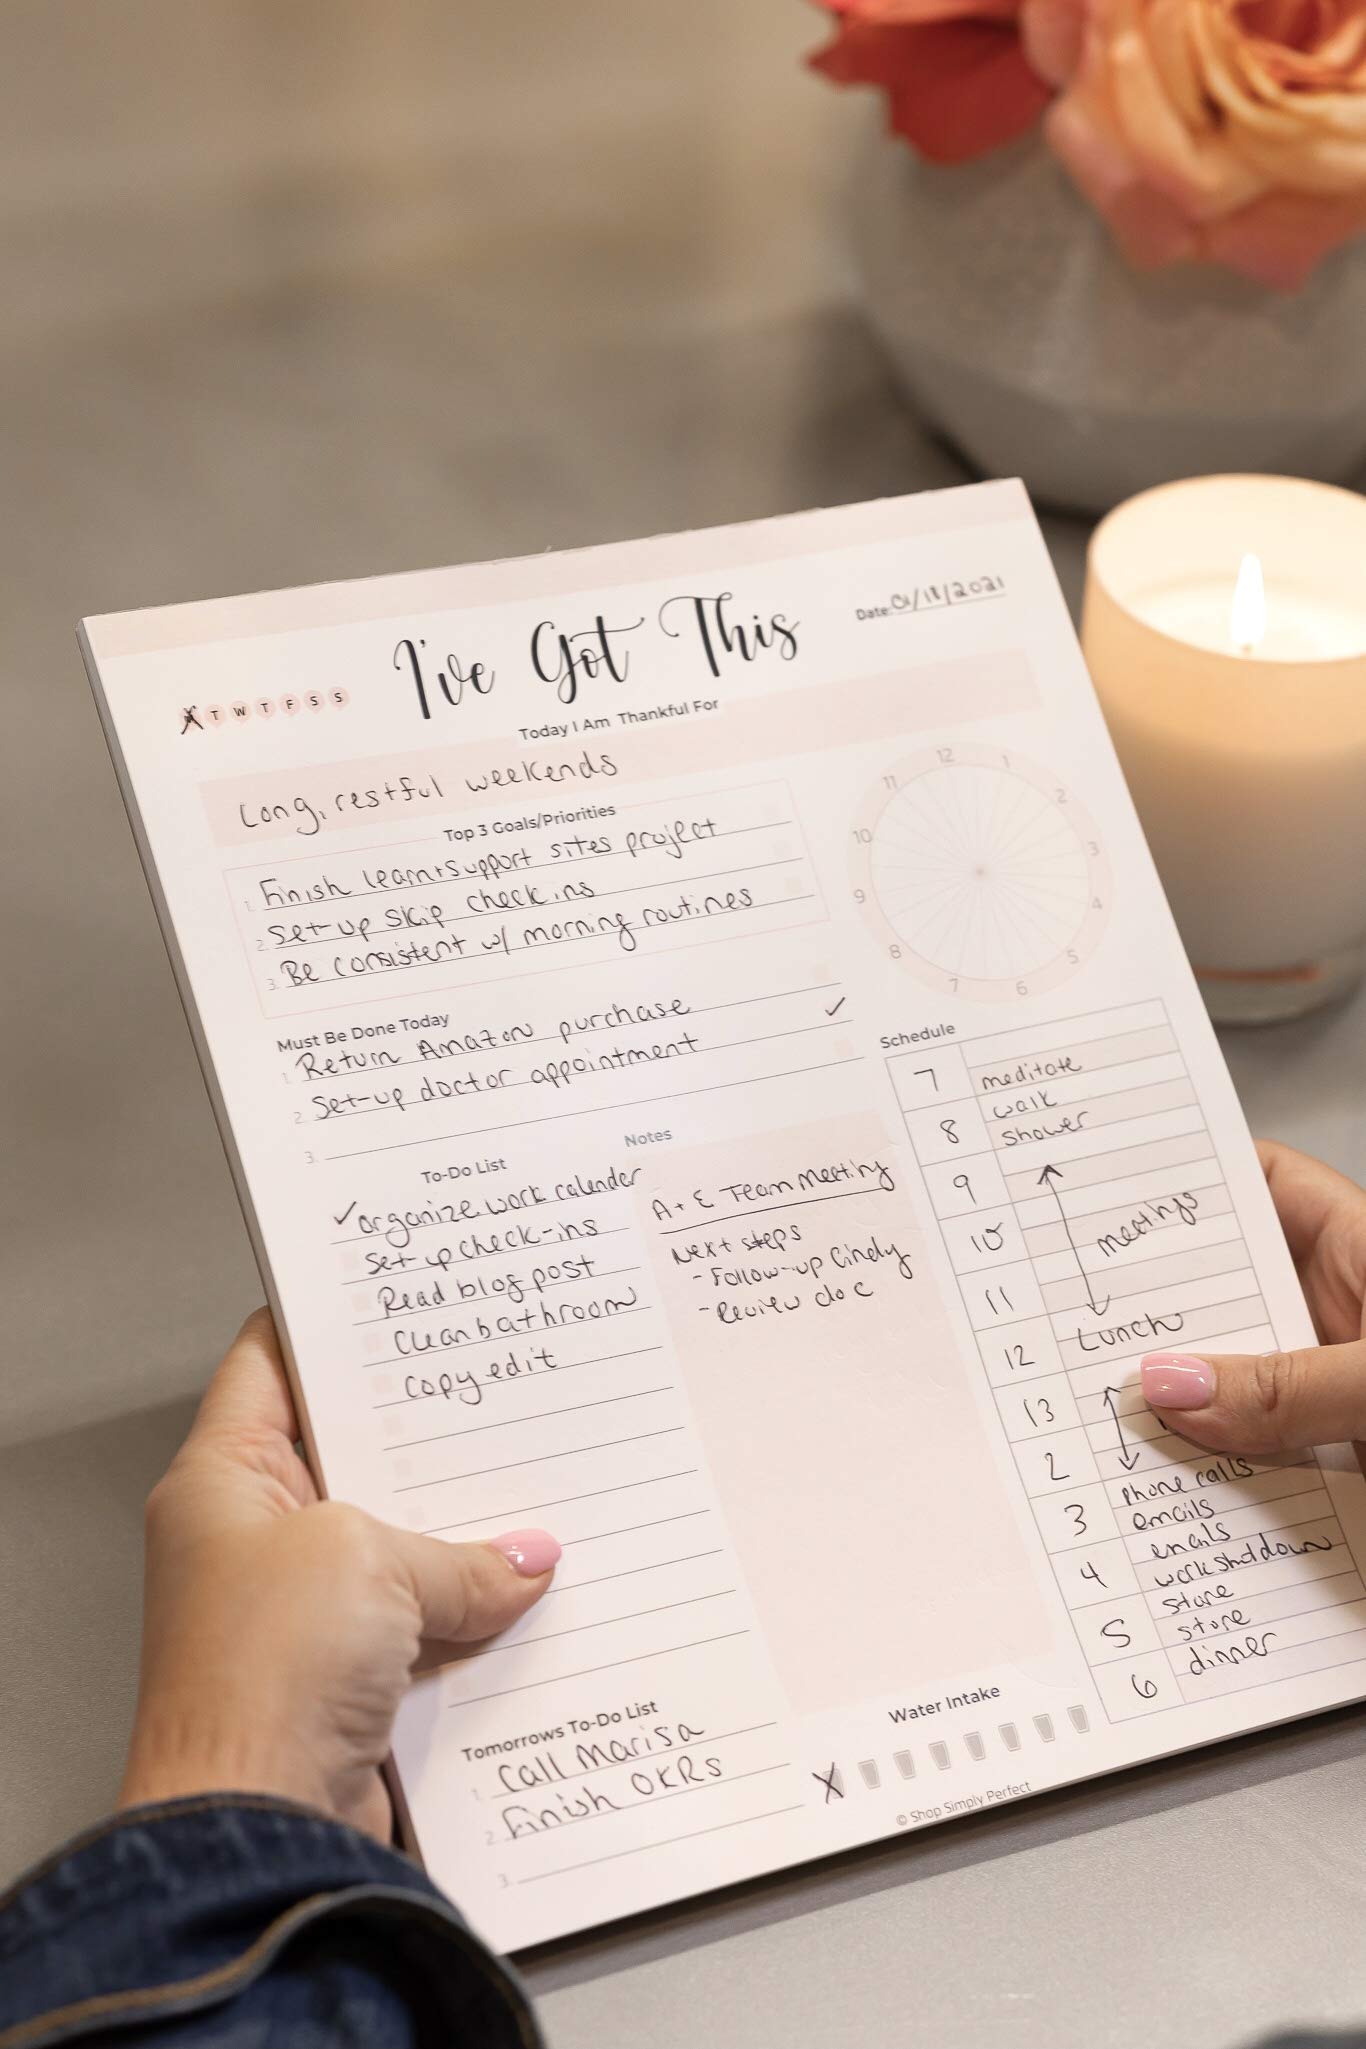 I've Got This
Date: 01/18/2021
M T W T F S S
Today I Am Thankful For
Long, restful weekends
Top 3 Goals/Priorities
1. Finish learn+support sites project
2. Set-up skip check ins
3. Be consistent w/ morning routines
12
1
2
3
4
5
6
7
8
9
10
11
Must Be Done Today
1. Return Amazon purchase
2. Set-up doctor appointment ✓
3.
To-Do List
✓ organize work calender
Set-up check-ins
Read blog post
Clean bathroom
Copy edit
Notes
A + E Team Meeting
Next steps
- Follow-up Cindy
- Review doc
Schedule
7 meditate
walk
8 shower
9
10 meetings
11
12 Lunch
13
2
phone calls
3 emails
emails
4 work shutdown
store
5 store
dinner
6
Tomorrows To-Do List
1. Call Marisa
2. Finish OKRs
3.
Water Intake
X
© Shop Simply Perfect